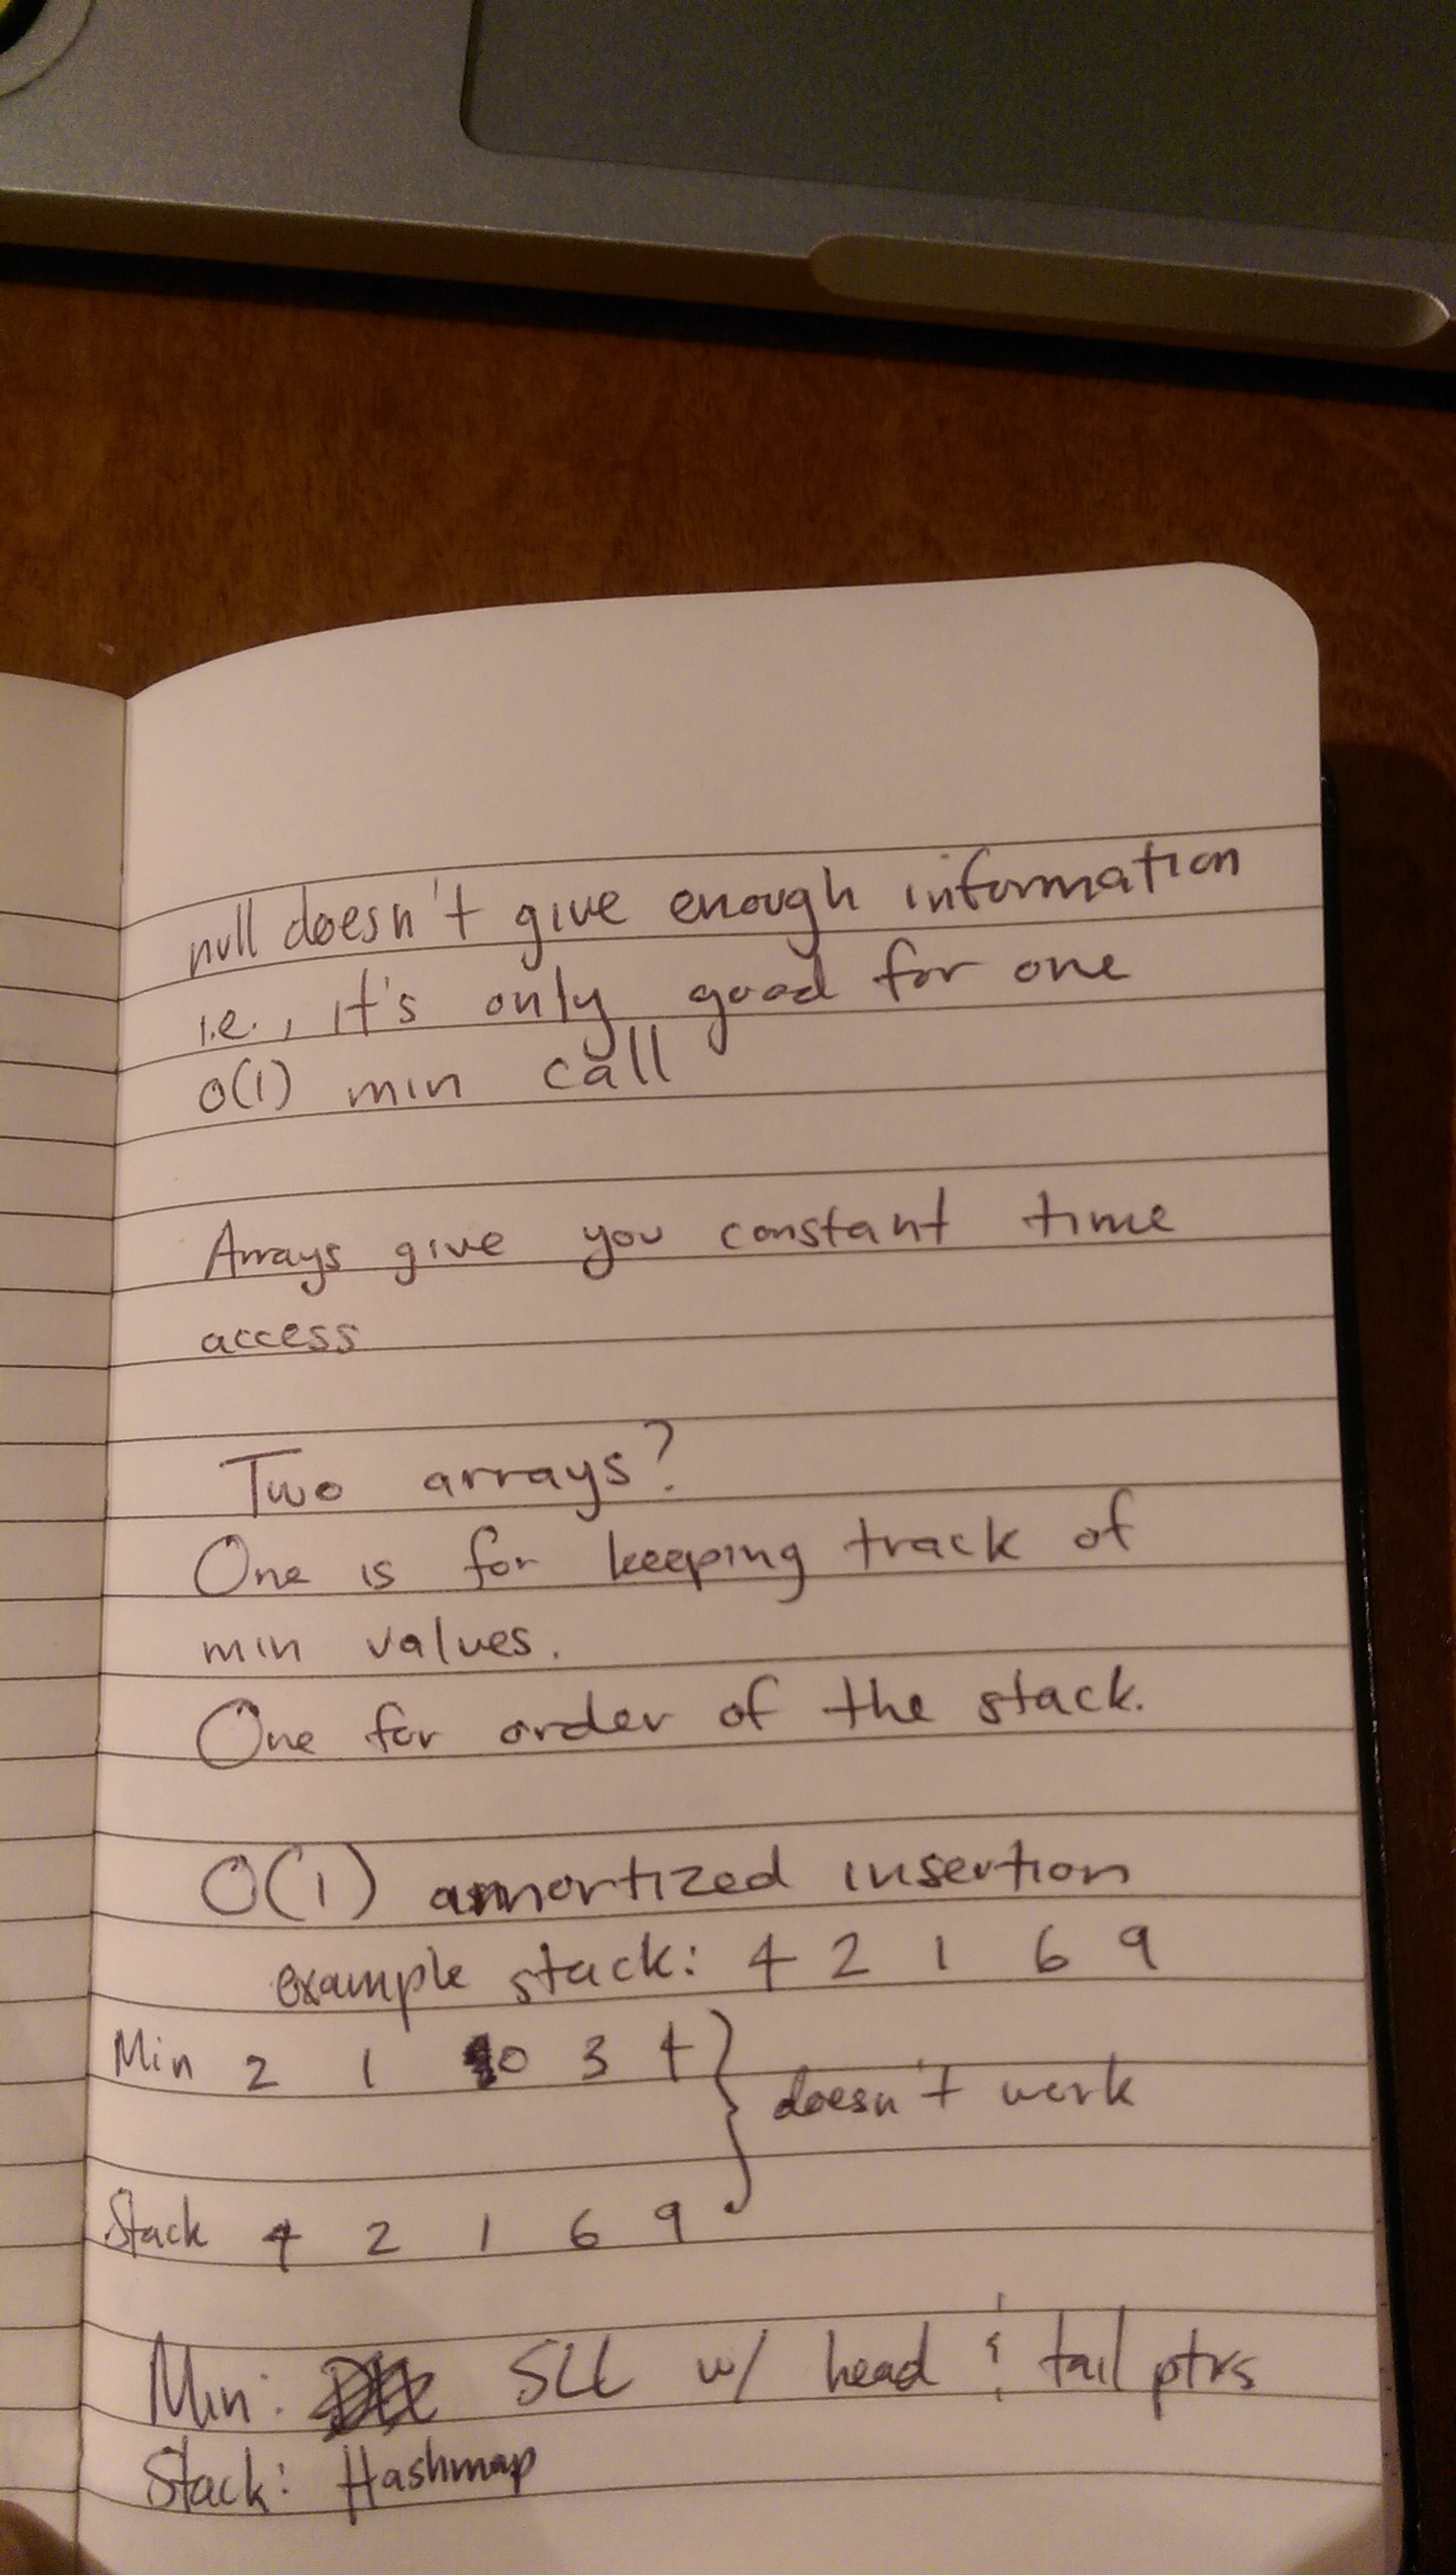 null doesn't give enough information
i.e., it's only good for one
O(1) min call
Arrays give you constant time
access
Two arrays?
One is for keeping track of
min values.
One for order of the stack.
O(1) amortized insertion
example stack: 4 2 1 6 9
Min 2 1 0 3 4 } doesn't work
Stack 4 2 1 6 9
Min: SLL w/ head & tail ptrs
Stack: Hashmap